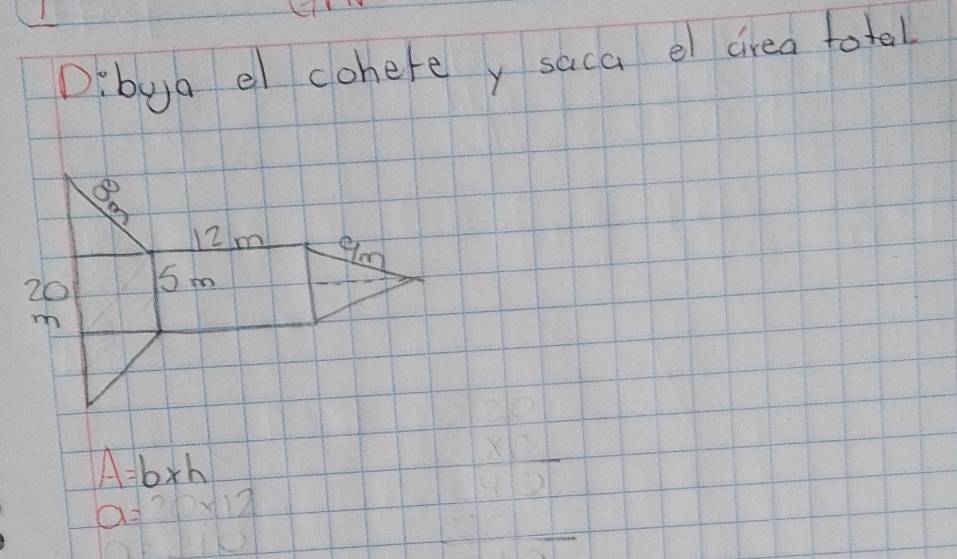 Dibuja el cohete y saca el área total.
8m
12 m
9m
5 m
20
m
A=bxh
a=20x12